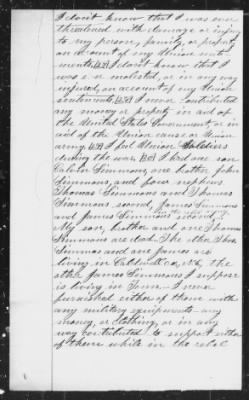 I don't know that I was ever
threatened with damage or injury
to my person, family, or property
on account of my Union senti-
ments. 47) I don't know that I
was ever molested, or in any way
injured, on account of my Union
sentiments. 48) I never contributed
any money or property in aid of
the United States Government, or in
aid of the Union cause or Union
army. 49) I fed Union Soldiers
during the war. 50) I had one son
Calvin Simmons, one brother John
Simmons, and four nephews
Thomas Simmons and Thomas
Simmons second, James Simmons
and James Simmons second
My son, brother and one Thomas
Simmons are dead. The other Thos.
Simmons and one James are
living in Caldwell Co, N.C. the
other James Simmons I suppose
is living in Tenn. I never
furnished either of them with
any military equipments any
money, or clothing, or in any
way contributed to support either
of them while in the rebel